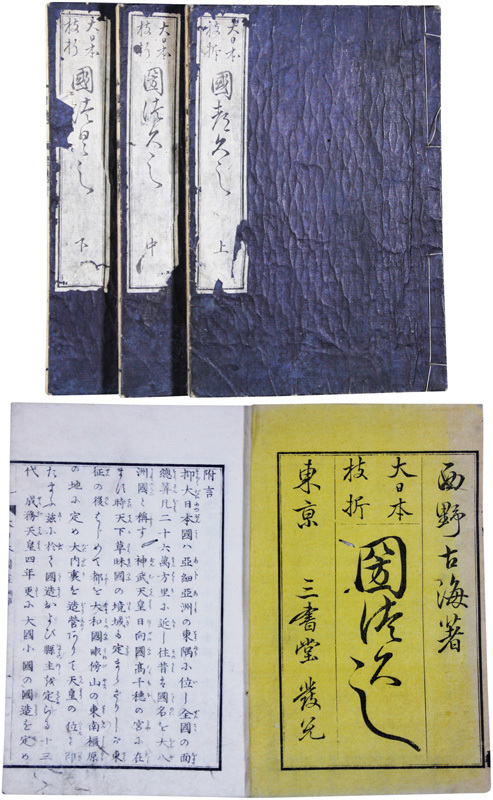 大日本
枝折
國つくし
上
大日本
枝折
國つくし
中
大日本
枝折
國つくし
下
西野古海著
大日本
枝折
國つくし
東京 三書堂發兌
附言
抑大日本國ハ亞細亞洲の東隅に位し全國の面
總算凡二十六萬方里に近し往昔ハ國名を大八
洲國と稱す神武天皇日向國高千穂の宮に在
ます時天下草昧國の境域も定まらざりしが東
征の後はじめて都を大和國畝傍山の東南橿原
の地に定め大内裏を造營ありて天皇の位に即
たまふ茲に於て國造および縣主を定らる十三
代成務天皇四年更に大國小國の國造を定め